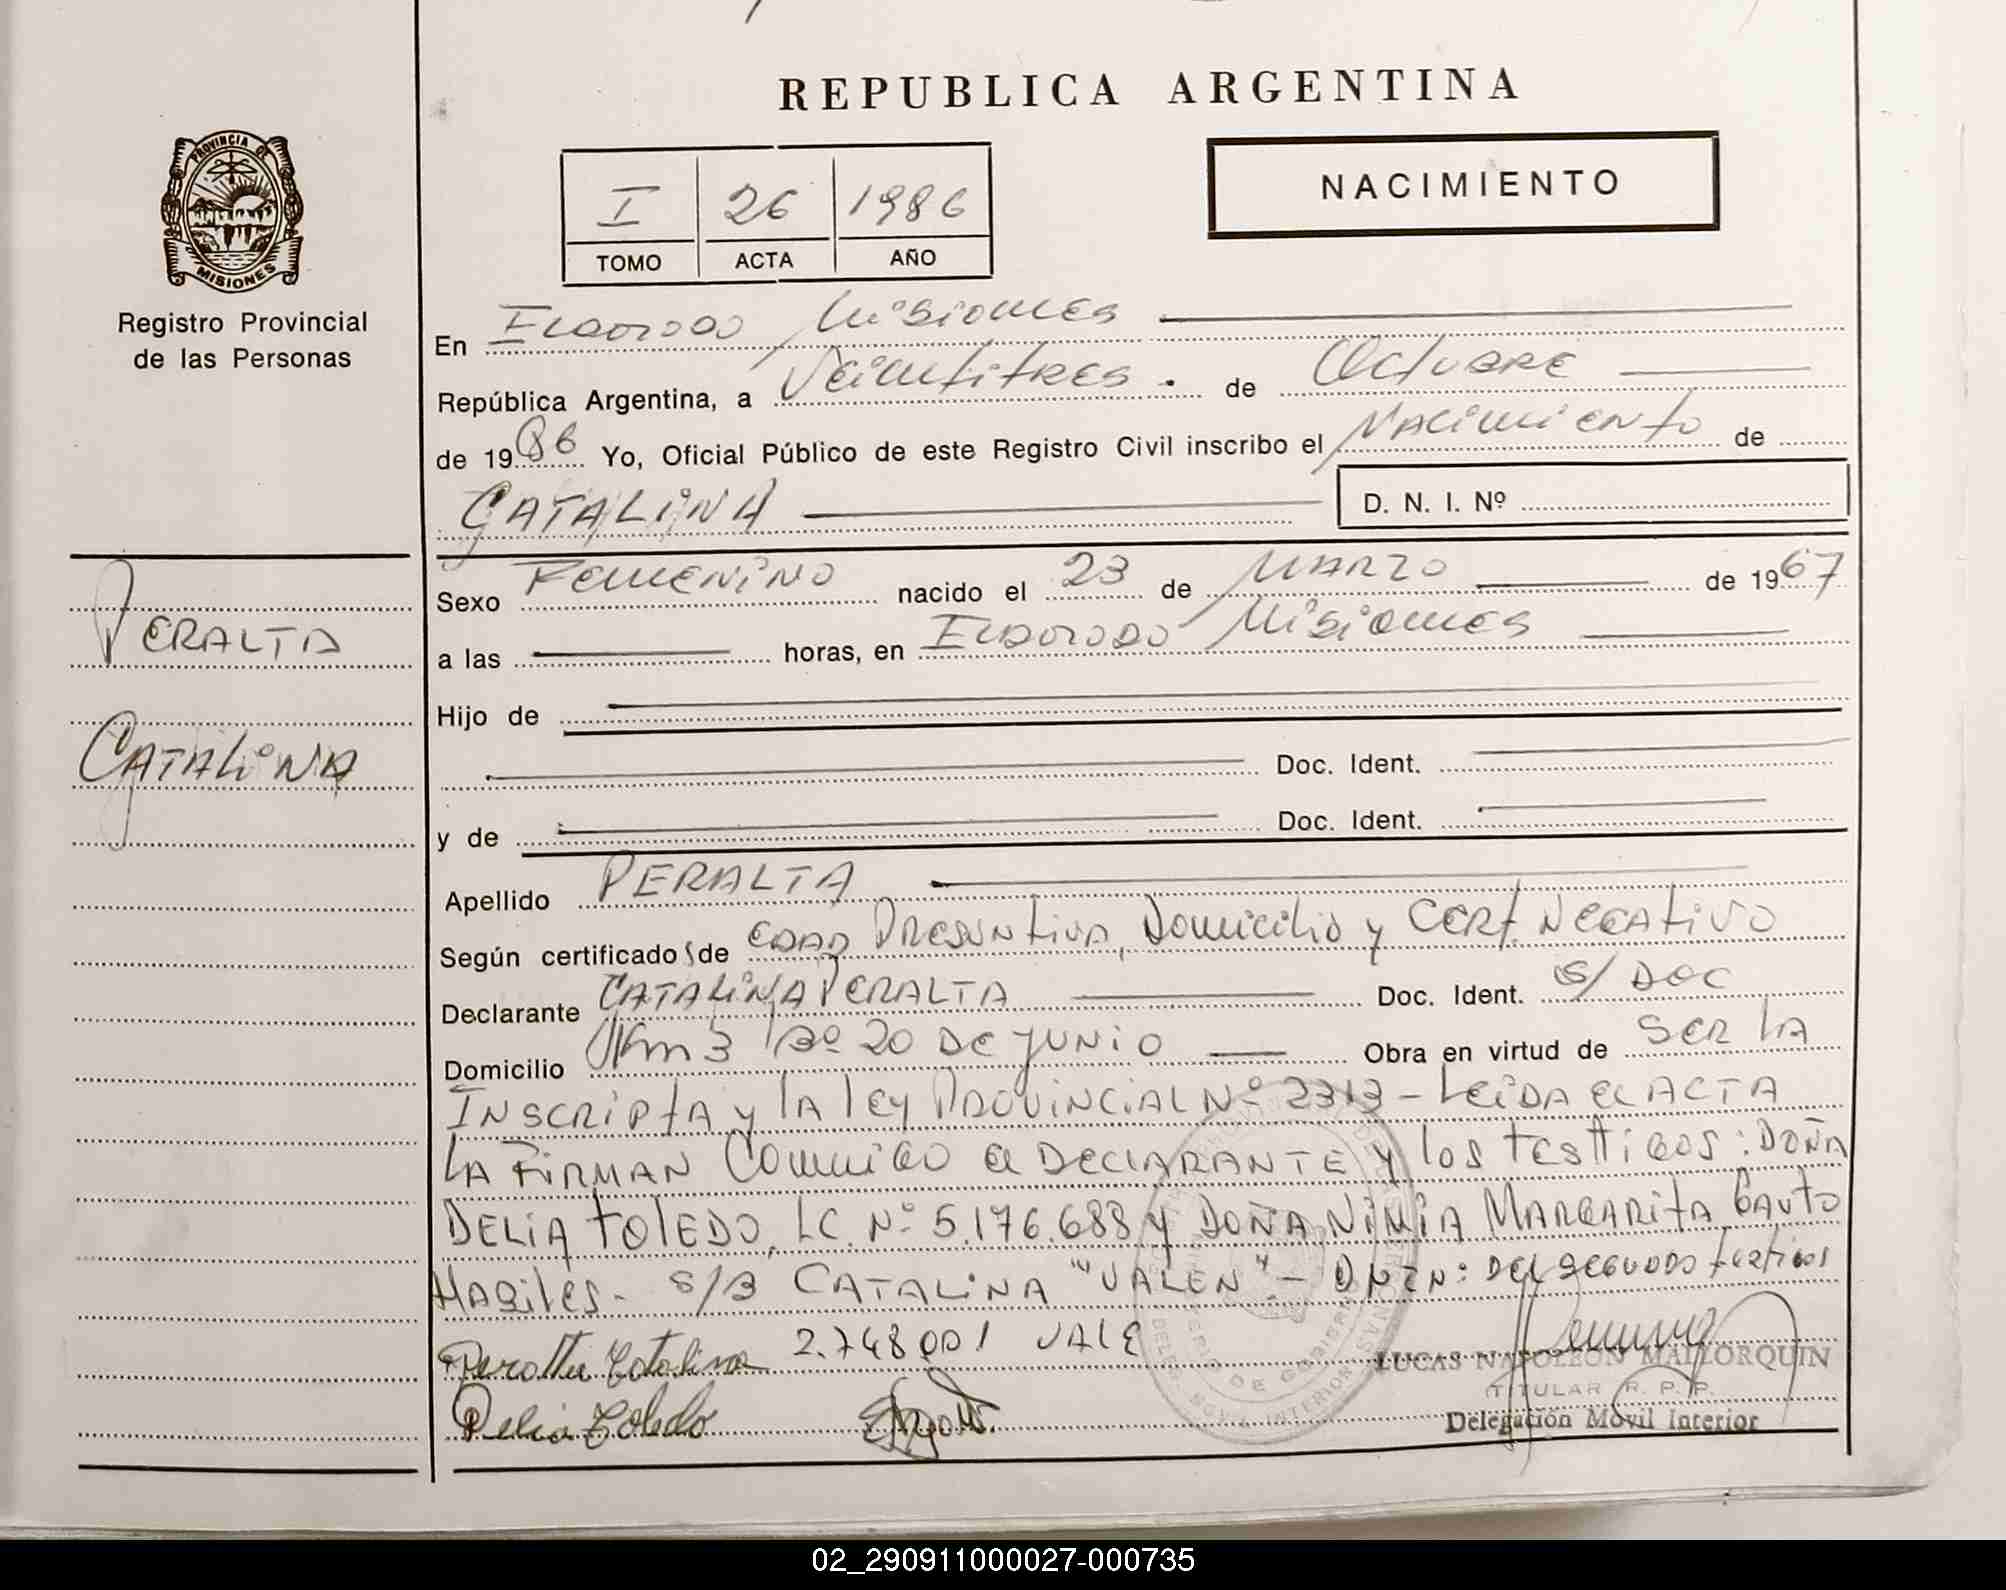 REPUBLICA ARGENTINA
PROVINCIA DE
MISIONES
Registro Provincial
de las Personas
I 26 1986
TOMO ACTA AÑO
NACIMIENTO
En Eldorado Misiones
República Argentina, a Veintitres de Octubre
de 1986 Yo, Oficial Público de este Registro Civil inscribo el Nacimiento de
CATALINA D. N. I. Nº
PERALTA
CATALINA
Sexo Femenino nacido el 23 de MARZO de 1967
a las horas, en Eldorado Misiones
Hijo de
Doc. Ident.
y de Doc. Ident.
Apellido PERALTA
Según certificado s de EDAD Presuntiva, Domicilio y CERT. NEGATIVO
Declarante CATALINA PERALTA Doc. Ident. S/ DOC
Domicilio Km 3 Bº 20 DE JUNIO Obra en virtud de SER LA
INSCRIPTA y LA LEY PROVINCIAL Nº 2313 - LEIDA EL ACTA
LA FIRMAN Conmigo el DECLARANTE y los testtigos: DOÑA
DELIA TOLEDO, LC. Nº 5.176.688 y DOÑA NIMIA MARGARITA GAUTO
Habiles. S/B CATALINA "VALEN" - DNI Nº: DEL SEGUNDO testigos
2.748.001 VALE
Peralta Catalina
LUCAS NAPOLEON MALLORQUIN
TITULAR R. P. P.
Delia Toledo
Delegación Móvil Interior
02_290911000027-000735